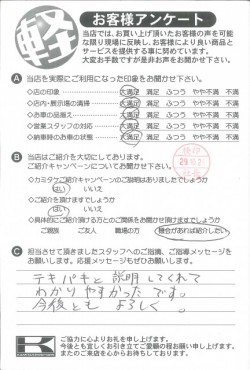 軽
お客様アンケート
当店では、お買い上げ頂いたお客様の声を可能
な限り現場に反映し、お客様により良い商品と
サービスを提供する事に努めています。
大変お手数ですが是非お声をお聞かせ下さい。
A 当店を実際にご利用になった印象をお聞かせ下さい。
◇店の印象 大満足 満足 ふつう やや不満 不満
◇店内・展示場の清掃 大満足 満足 ふつう やや不満 不満
◇お車の品揃え 大満足 満足 ふつう やや不満 不満
◇営業スタッフの対応 大満足 満足 ふつう やや不満 不満
◇納車時のお車の状態 大満足 満足 ふつう やや不満 不満
B 当店はご紹介を大切にしております。
ご紹介キャンペーンについてお聞かせ下さい。
◇カミタケご紹介キャンペーンのご説明はありましたでしょうか
はい いいえ
◇ご紹介を頂けますでしょうか
はい いいえ
◇具体的にご紹介頂ける方とのご関係をお聞かせ頂けますでしょうか
ご親族 ご友人 職場の方 機会があれば紹介したい
C 担当させて頂きましたスタッフへのご指摘、ご指導メッセージを
お願いします。応援メッセージもぜひお願いします。
テキパキと説明してくれて
わかりやすかったです。
今後ともよろしく。
K
ご協力に心よりお礼を申し上げます。
今後とも宜しくお引き立てご愛顧の程お願い申し上げます。
またのご来店を心からお待ちしております。